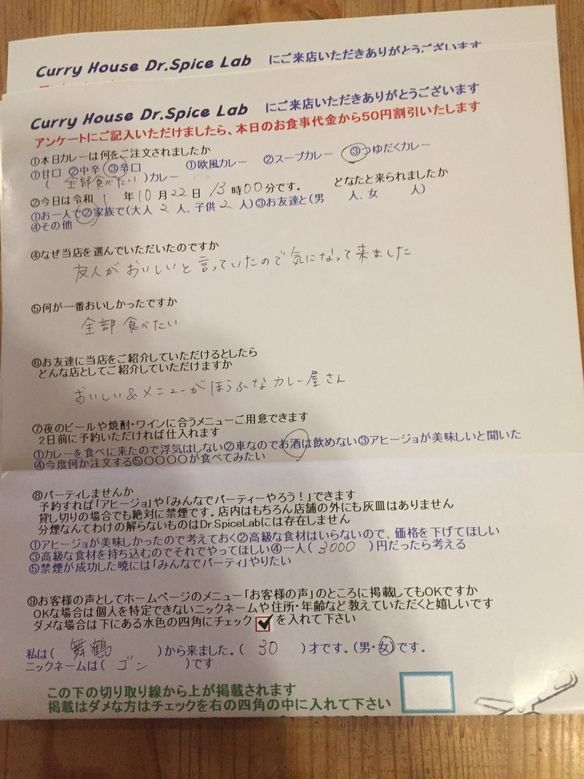 Curry House Dr.Spice Lab にご来店いただきありがとうございます
Curry House Dr.Spice Lab にご来店いただきありがとうございます
アンケートにご記入いただけましたら、本日のお食事代金から50円割引いたします
①本日カレーは何をご注文されましたか
①甘口 ②中辛 ③辛口 ①欧風カレー ②スープカレー ③つゆだくカレー
( 全部食べたい )カレー
②今日は令和 1 年 10 月 22 日 13 時 00 分です。 どなたと来られましたか
①お一人で②家族で(大人 2 人、子供 2 人)③お友達と(男 人、女 人)
④その他
④なぜ当店を選んでいただいたのですか
友人がおいしいと言っていたので気になって来ました
⑤何が一番おいしかったですか
全部食べたい
⑥お友達に当店をご紹介していただけるとしたら
どんな店としてご紹介していただけますか
おいしい&メニューがほうふなカレー屋さん
⑦夜のビールや焼酎・ワインに合うメニューご用意できます
2日前に予約いただければ仕入れます
①カレーを食べに来たので浮気はしない②車なのでお酒は飲めない③アヒージョが美味しいと聞いた
④今度何か注文する⑤○○○○が食べてみたい
⑧パーティしませんか
予約すれば「アヒージョ」や「みんなでパーティーやろう!」できます
貸し切りの場合でも絶対に禁煙です。店内はもちろん店舗の外にも灰皿はありません
分煙なんてわけの解らないものはDr.SpiceLabには存在しません
①アヒージョが美味しかったので考えておく②高級な食材はいらないので、価格を下げてほしい
③高級な食材を持ち込むのでそれでやってほしい④一人( 3000 )円だったら考える
⑤禁煙が成功した暁には「みんなでパーティ」やりたい
⑨お客様の声としてホームページのメニュー「お客様の声」のところに掲載してもOKですか
OKな場合は個人を特定できないニックネームや住所・年齢など教えていただくと嬉しいです
ダメな場合は下にある水色の四角にチェック を入れて下さい
私は( 舞鶴 )から来ました。( 30 )才です。(男・女)です。
ニックネームは( ゴン )です
この下の切り取り線から上が掲載されます
掲載はダメな方はチェックを右の四角の中に入れて下さい